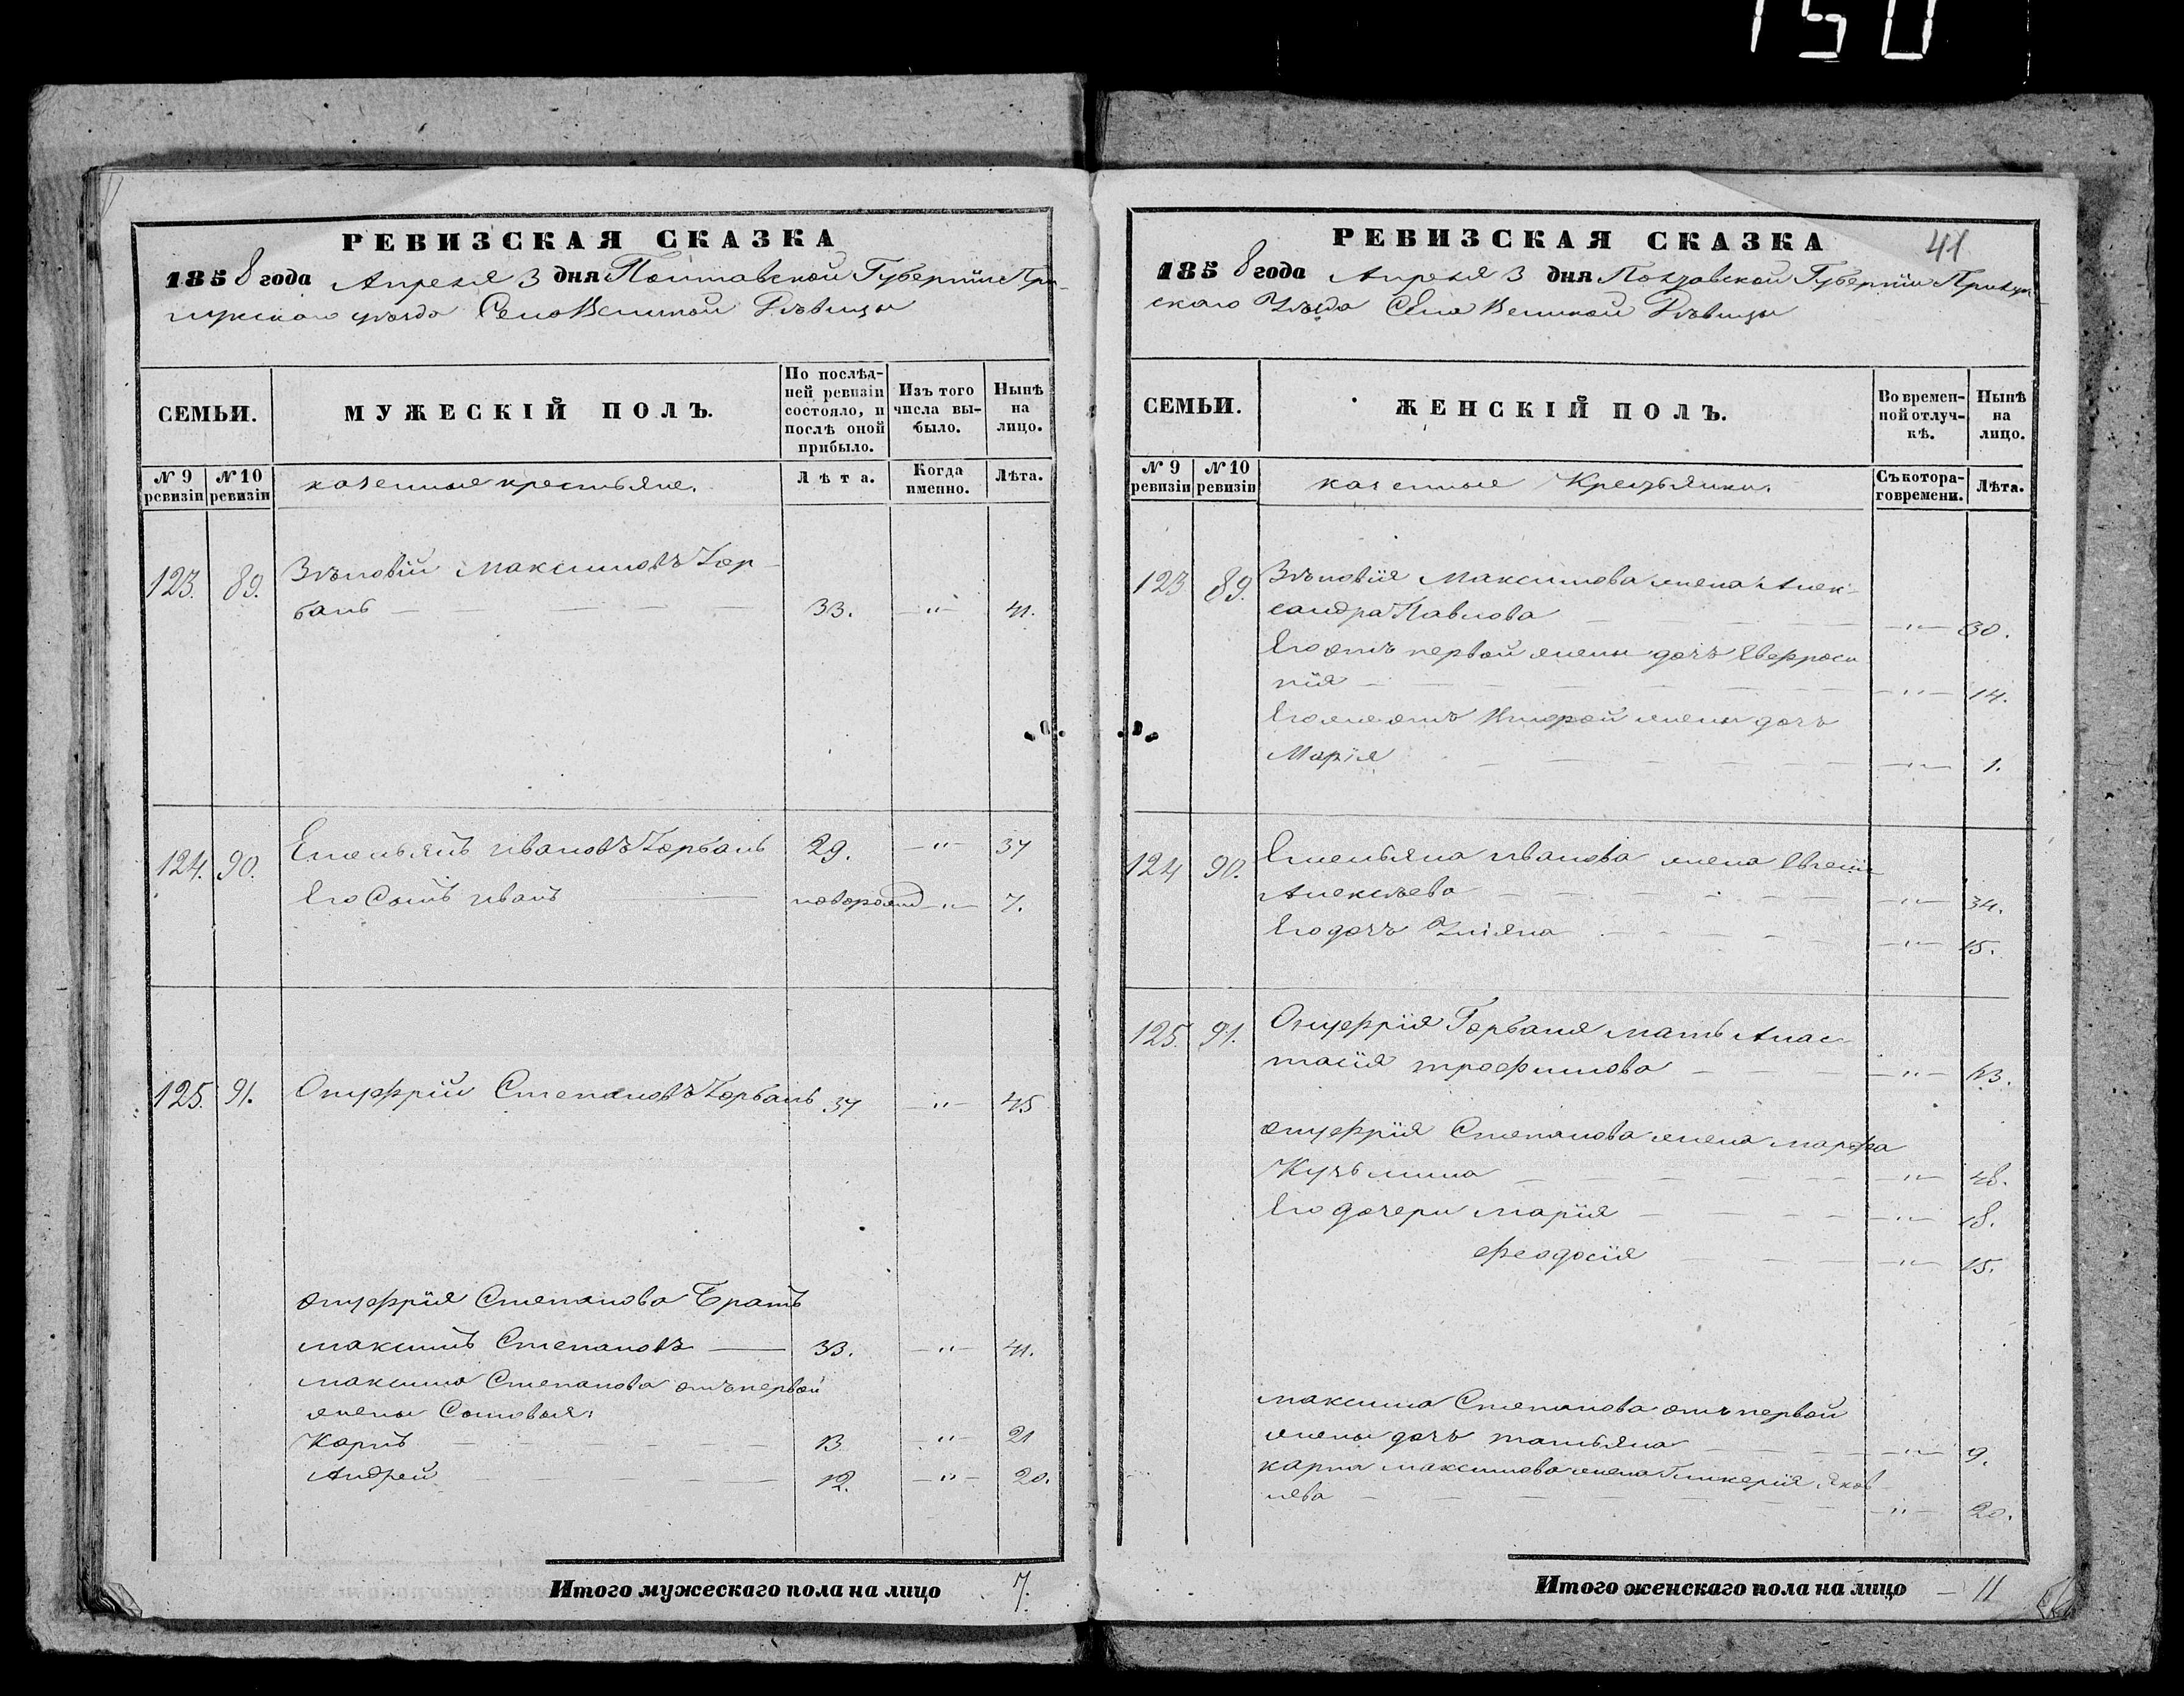 150
РЕВИЗСКАЯ СКАЗКА
1858 года Апреля 3 дня Полтавской Губернiи При-
лукскаго уѣзда Села Великой Дѣвицы
СЕМЬИ.
МУЖЕСКIЙ ПОЛЪ.
По послѣд-
ней ревизiи
состояло, и
послѣ оной
прибыло.
Изъ того
числа вы-
было.
Нынѣ
на
лицо.
№ 9
ревизiи
№ 10
ревизiи
казенные крестьяне.
Лѣта.
Когда
именно.
Лѣта.
123. 89. Зѣновiй Максимовъ Гор-
бань — — — — 33. —"— 41.
124. 90. Емельянъ Ивановъ Горбань 29. —"— 37
Его Сынъ Иванъ —— новорожд —"— 7.
125. 91. Онуфрiй Степановъ Горбань 37 —"— 45
Онуфрiя Степанова Братъ
Максимъ Степановъ —— 33. —"— 41.
Максима Степанова отъ первой
жены Сыновья:
Карпъ — — — — 13 —"— 21
Андрей — — — 12. —"— 20.
Итого мужескаго пола на лицо 7.
РЕВИЗСКАЯ СКАЗКА
41
1858 года Апреля 3 дня Полтавской Губернiи Прилук-
скаго Уѣзда Села Великой Дѣвицы
СЕМЬИ.
ЖЕНСКIЙ ПОЛЪ.
Во времен-
ной отлуч-
кѣ.
Нынѣ
на
лицо.
№ 9
ревизiи
№ 10
ревизiи
казенные Крестьянки.
Съ котора-
го времени.
Лѣта.
123 89. Зѣновiя Максимова жена Алек-
сандра Павлова — — — —"— 30.
Его отъ первой жены дочь Евфроси
нiя — — — —"— 14.
Его же отъ Второй жены дочь
Марiя — — — —"— 1.
124 90. Емельяна Иванова жена
Алексѣева — — — —"— 34.
Его дочь Улiяна — — — —"— 15.
125. 91. Онуфрiя Горбаня мать Анас-
тасiя Трофимова — — —"— 63.
Онуфрiя Степанова жена Марфа
Кузьмина — — — —"— 48.
Его дочери Марiя — — —"— 18.
Феодосiя — — —"— 15.
Максима Степанова отъ первой
жены дочь Татьяна — — —"— 9.
Карпа Максимова жена Гликерiя Яков
лева — — — —"— 20.
Итого женскаго пола на лицо — 11